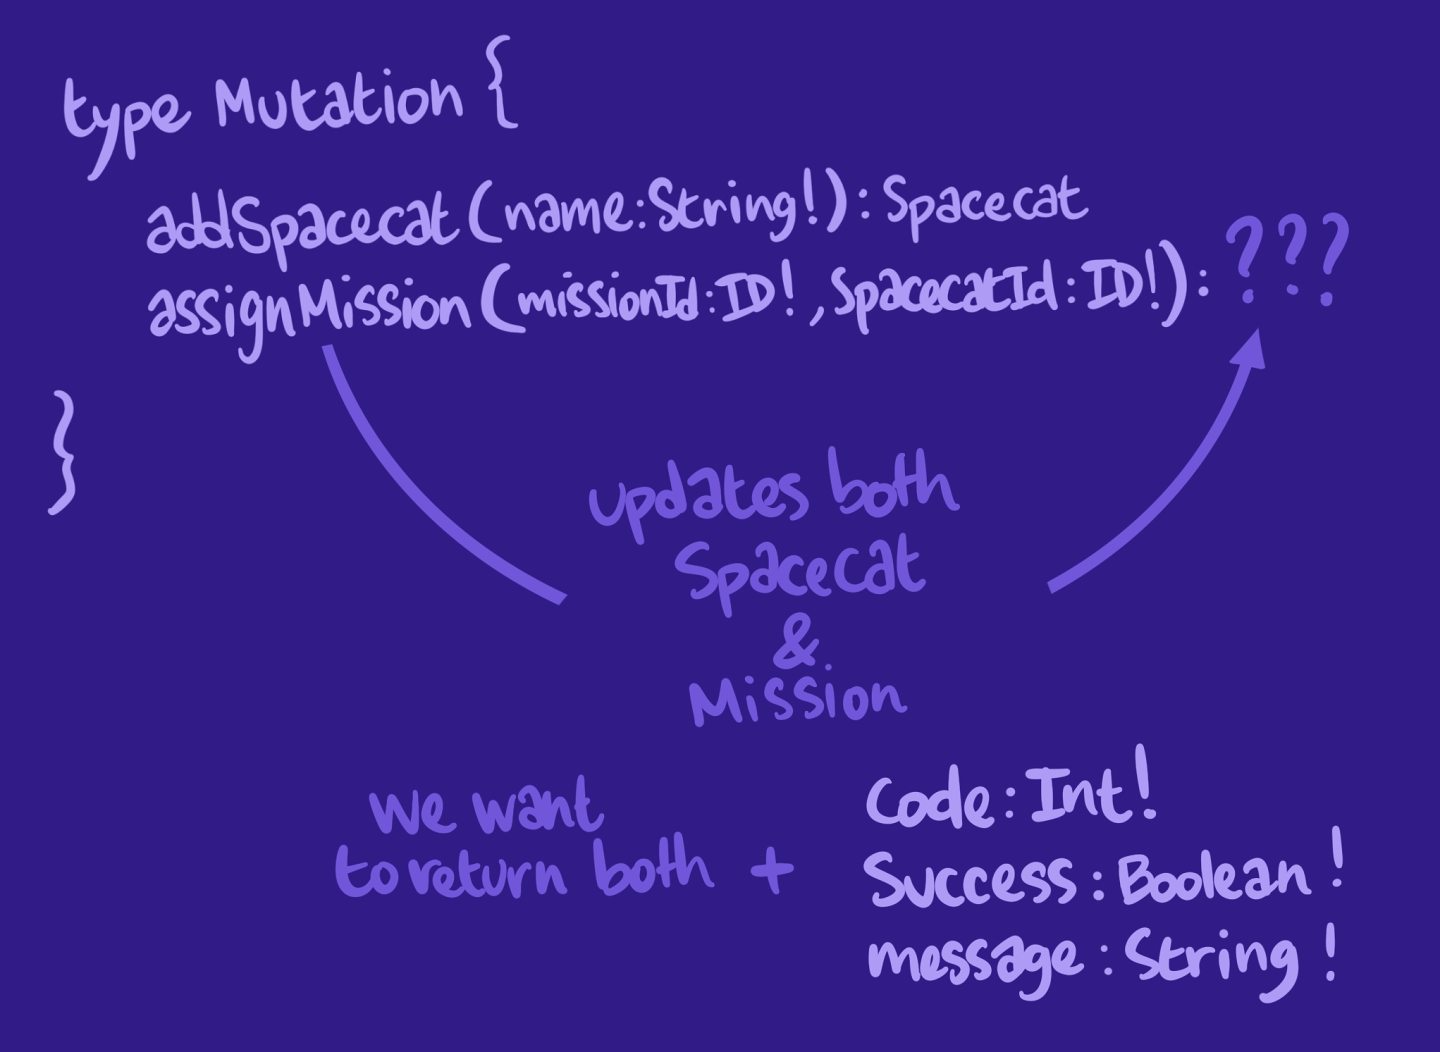 type Mutation {
addSpacecat(name:String!): Spacecat
assignMission(missionId:ID!, SpacecatId:ID!): ???
}
updates both
Spacecat
&
Mission
we want
to return both +
Code: Int!
Success: Boolean!
message: String!